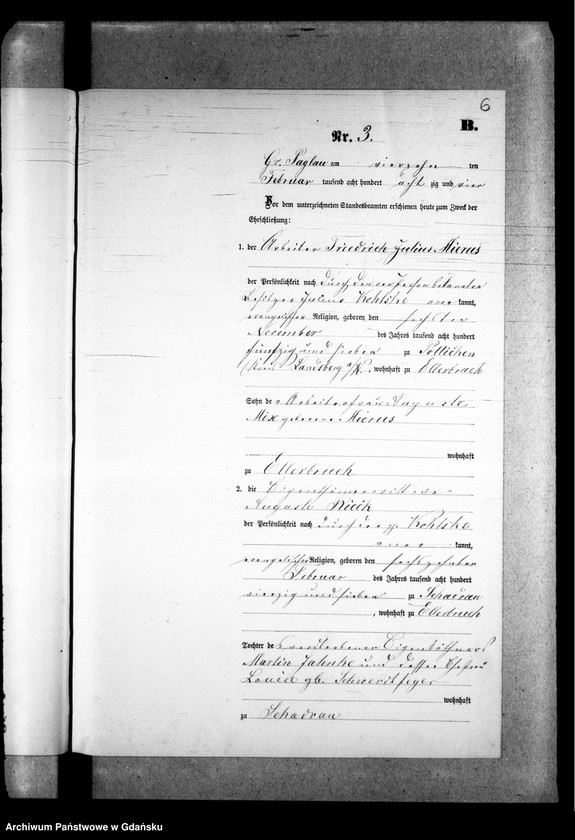 6
B.
Nr. 3.
Gr. Paglau am vierzehn ten
Februar tausend acht hundert acht zig und vier
Vor dem unterzeichneten Standesbeamten erschienen heute zum Zweck der
Eheschließung:
1. der Arbeiter Friedrich Julius Mierus
der Persönlichkeit nach durch den von Person bekannten
Besitzer Julius Kohtske aner kannt,
evangelischer Religion, geboren den sechsten
November des Jahres tausend acht hundert
fünfzig und sieben zu Pollichen
Kreis Landsberg a/W., wohnhaft zu Ellerbruch
Sohn der Arbeiterfrau Auguste
Mix geborene Mierus
wohnhaft
zu Ellerbruch
2. die Eigenthümerwittwe
Auguste
der Persönlichkeit nach durch den p. Kohtske
aner kannt,
evangelischer Religion, geboren den sechszehnten
Februar des Jahres tausend acht hundert
vierzig und sieben zu Schadrau
, wohnhaft zu Ellerbruch
Tochter des verstorbenen Eigenkäthners
Martin Jahnke und dessen Ehefrau
Louise gb. Schwerdtfeger
wohnhaft
zu Schadrau
Archiwum Państwowe w Gdańsku